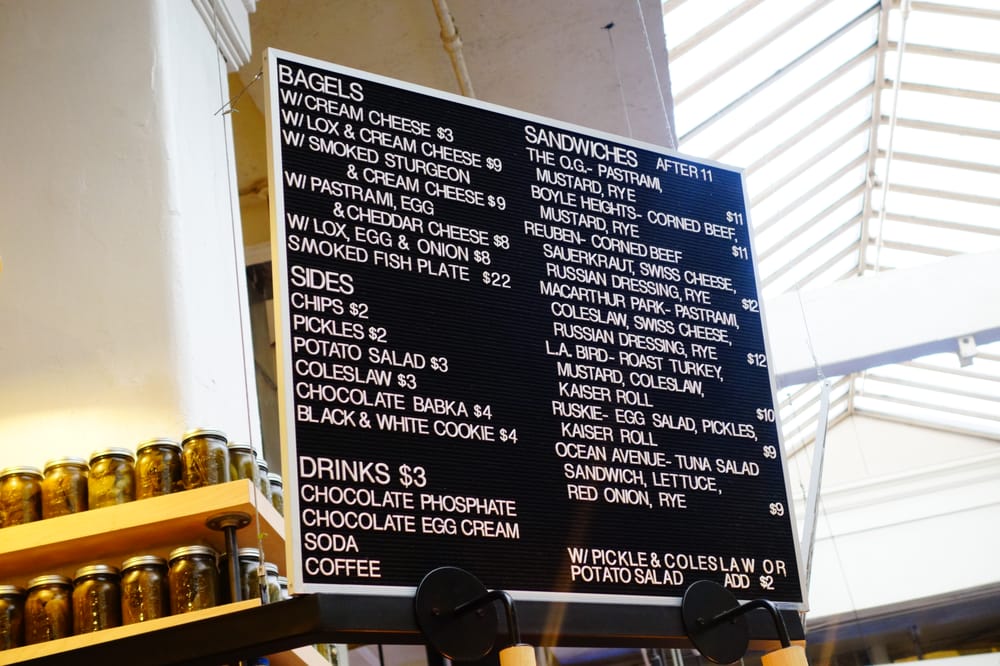 BAGELS
W/ CREAM CHEESE $3
W/ LOX & CREAM CHEESE $9
W/ SMOKED STURGEON
& CREAM CHEESE $9
W/ PASTRAMI, EGG
& CHEDDAR CHEESE $8
W/ LOX, EGG & ONION $8
SMOKED FISH PLATE $22
SIDES
CHIPS $2
PICKLES $2
POTATO SALAD $3
COLESLAW $3
CHOCOLATE BABKA $4
BLACK & WHITE COOKIE $4
DRINKS $3
CHOCOLATE PHOSPHATE
CHOCOLATE EGG CREAM
SODA
COFFEE
SANDWICHES AFTER 11
THE O.G.- PASTRAMI,
MUSTARD, RYE $11
BOYLE HEIGHTS- CORNED BEEF,
MUSTARD, RYE $11
REUBEN- CORNED BEEF
SAUERKRAUT, SWISS CHEESE,
RUSSIAN DRESSING, RYE $12
MACARTHUR PARK- PASTRAMI,
COLESLAW, SWISS CHEESE,
RUSSIAN DRESSING, RYE $12
L.A. BIRD- ROAST TURKEY,
MUSTARD, COLESLAW,
KAISER ROLL $10
RUSKIE- EGG SALAD, PICKLES,
KAISER ROLL $9
OCEAN AVENUE- TUNA SALAD
SANDWICH, LETTUCE,
RED ONION, RYE $9
W/ PICKLE & COLESLAW OR
POTATO SALAD ADD $2